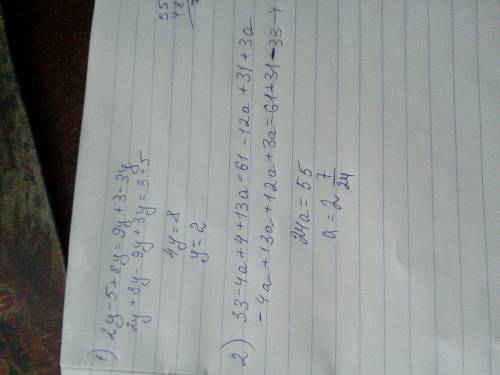 1) 2y-5+8y=9y+3-3y
2y+8y-9y+3y=3+5
4y=8
y=2
55
48
2) 33-4a+4+13a=61-12a+31+3a
-4a+13a+12a+3a=61+31-33-4
24a=55
a=2 7/24